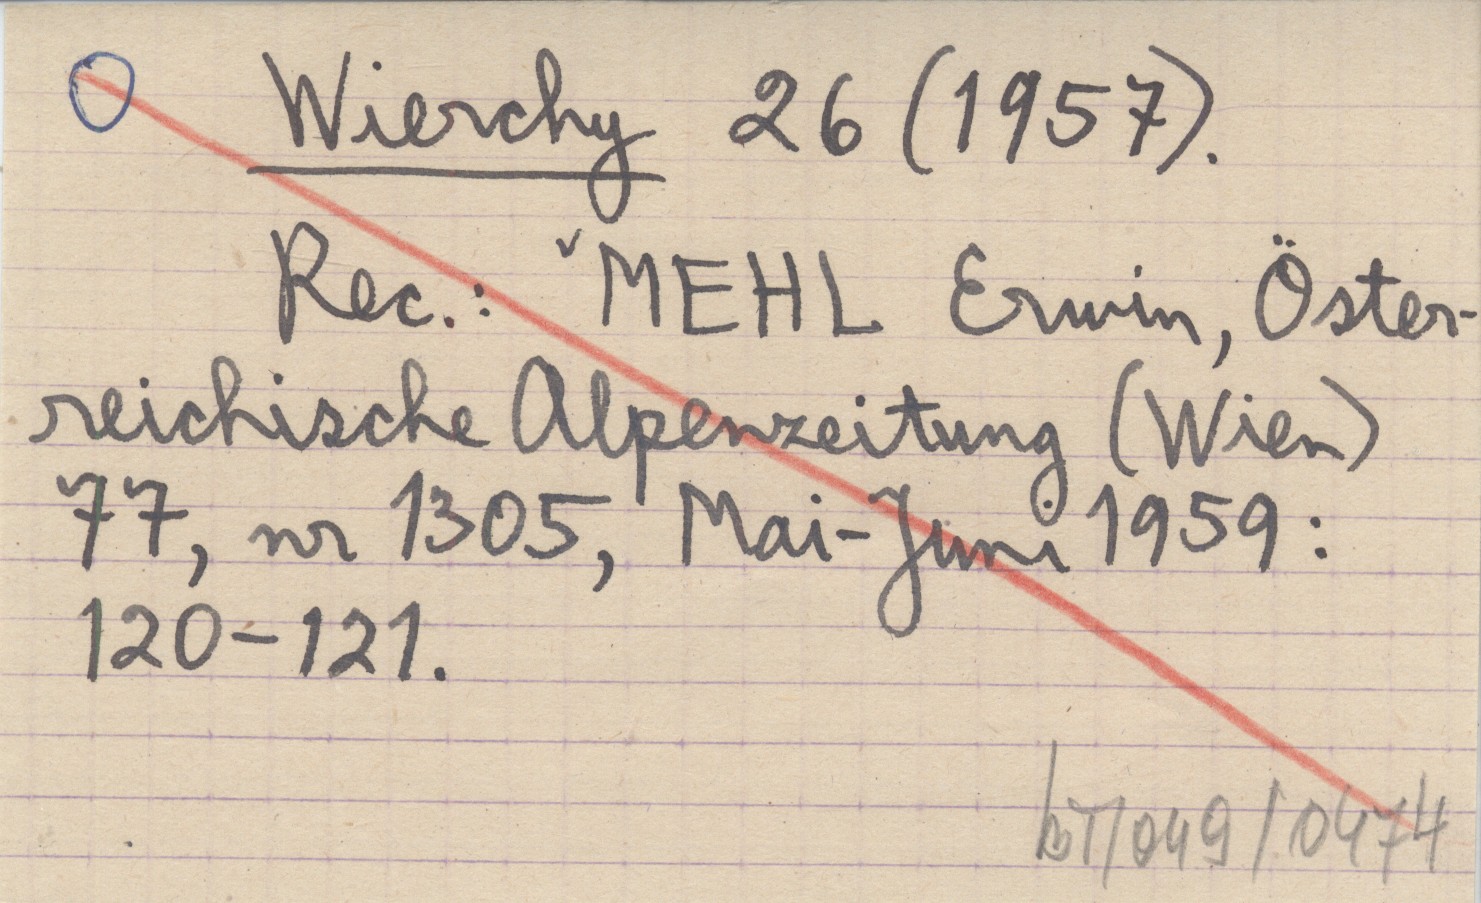 O Wierchy 26 (1957).
Rec.: ˇMEHL Erwin, Öster-
reichische Alpenzeitung (Wien)
77, nr 1305, Mai-Juni 1959:
120-121.
bT/049/0474